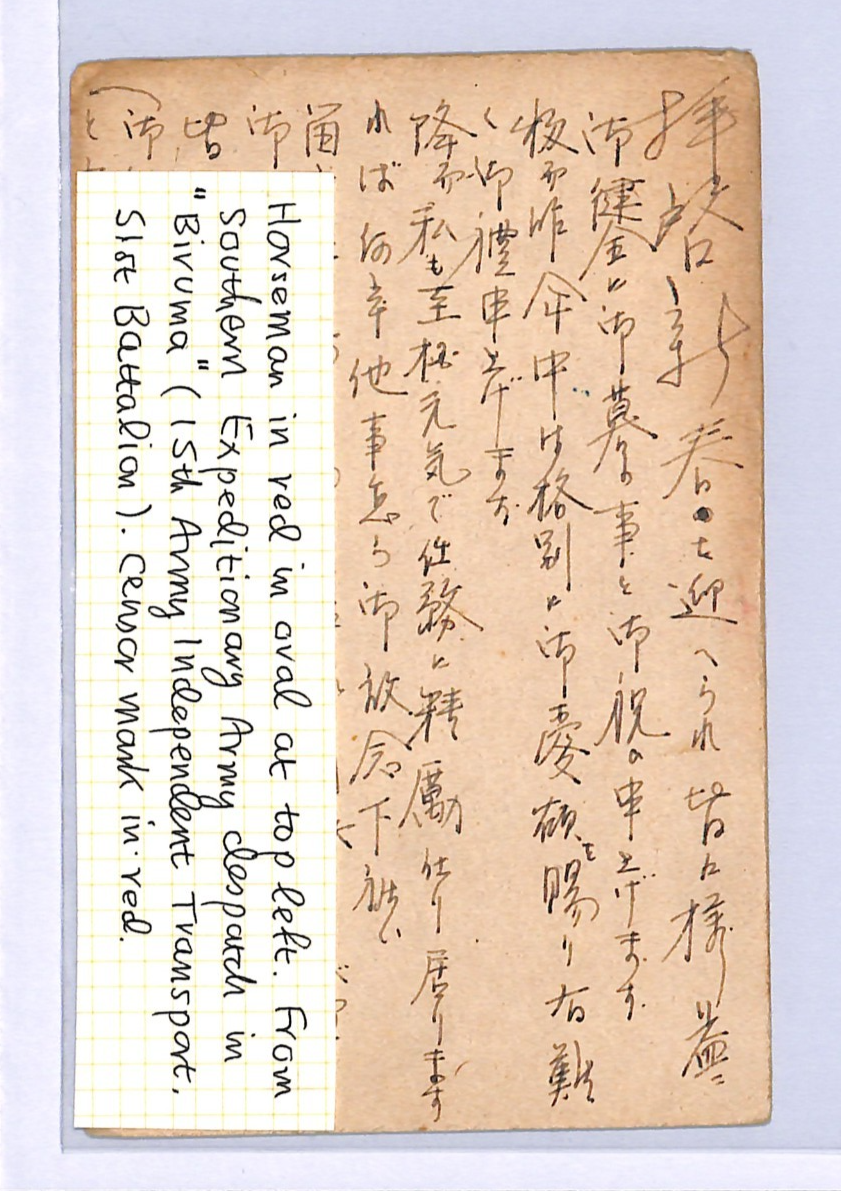 拝啓 新春を迎へられ皆々様益々
御健全に御暮の事と御祝の申上げます
扨而昨年中は格別に御愛顧を賜り有難
く御禮申上げます
降而私も至極元気で任務に精励仕り居ります
れば何卒他事乍ら御放念下被い
御
皆
御
Horseman in red in oval at top left. From
Southern Expeditionary Army despatch in
"Biruma" (15th Army Independent Transport,
51st Battalion). Censor mark in red.